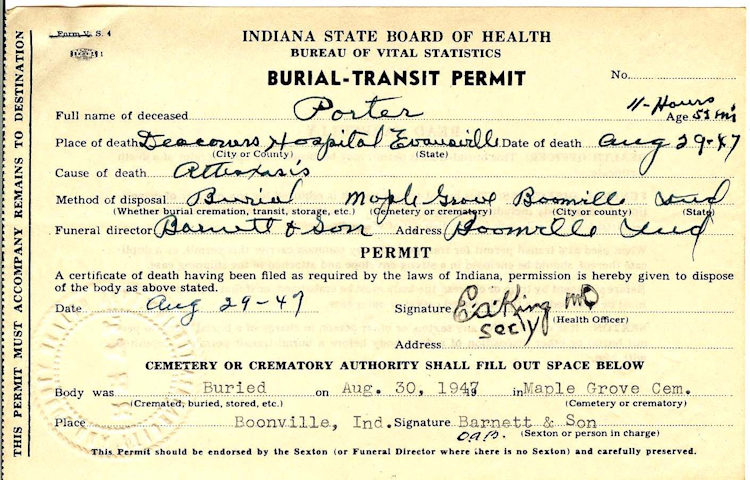 Form V. S. 4
INDIANA STATE BOARD OF HEALTH
BUREAU OF VITAL STATISTICS
BURIAL-TRANSIT PERMIT
No.
Full name of deceased Porter Age 11-Hours 51 mi
Place of death Deacones Hospital Evansville Date of death Aug 29-47
(City or County) (State)
Cause of death
Method of disposal Burial Maple Grove Boonville Ind
(Whether burial cremation, transit, storage, etc.) (Cemetery or crematory) (City or county) (State)
Funeral director Barnett & Son Address Boonville Ind
PERMIT
A certificate of death having been filed as required by the laws of Indiana, permission is hereby given to dispose
of the body as above stated.
Date Aug 29-47 Signature E.a. King MD
Secty (Health Officer)
Address
CEMETERY OR CREMATORY AUTHORITY SHALL FILL OUT SPACE BELOW
Body was Buried on Aug. 30, 1947 in Maple Grove Cem.
(Cremated, buried, stored, etc.) (Cemetery or crematory)
Place Boonville, Ind. Signature Barnett & Son
(Sexton or person in charge)
This Permit should be endorsed by the Sexton (or Funeral Director where there is no Sexton) and carefully preserved.
THIS PERMIT MUST ACCOMPANY REMAINS TO DESTINATION